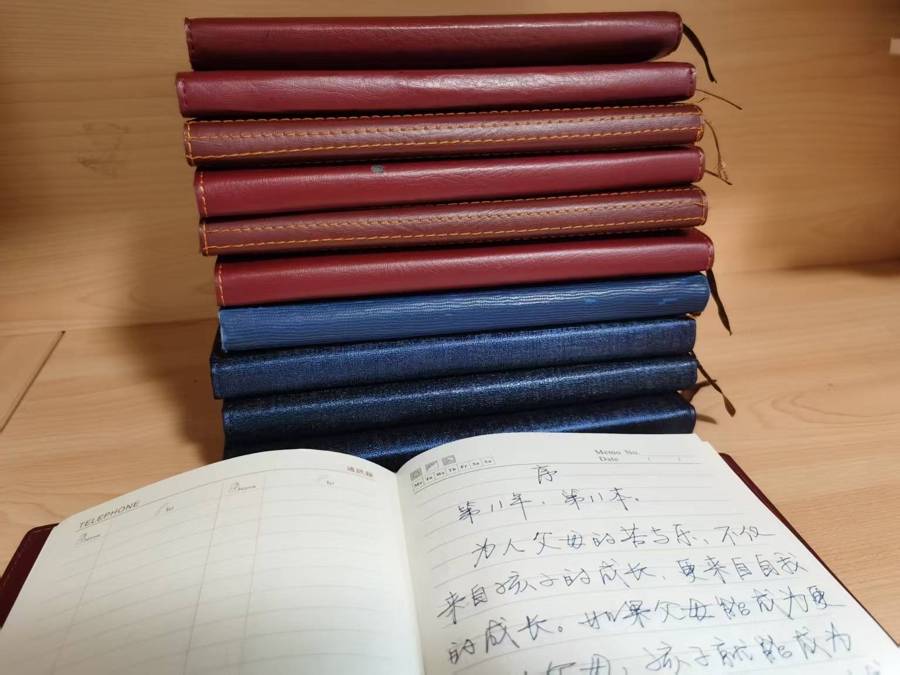 TELEPHONE
通讯录
Name
Tel
Name
Tel
Mo Tu We Th Fr Sa Su
Memo No.
Date / /
序
第11年,第11本.
为人父母的苦与乐,不仅
来自孩子的成长,更来自自我
的成长。如果父母能成为更
父母,孩子就能成为